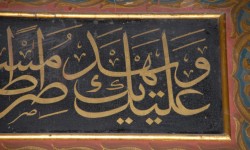 عليك ويهديك صراطا